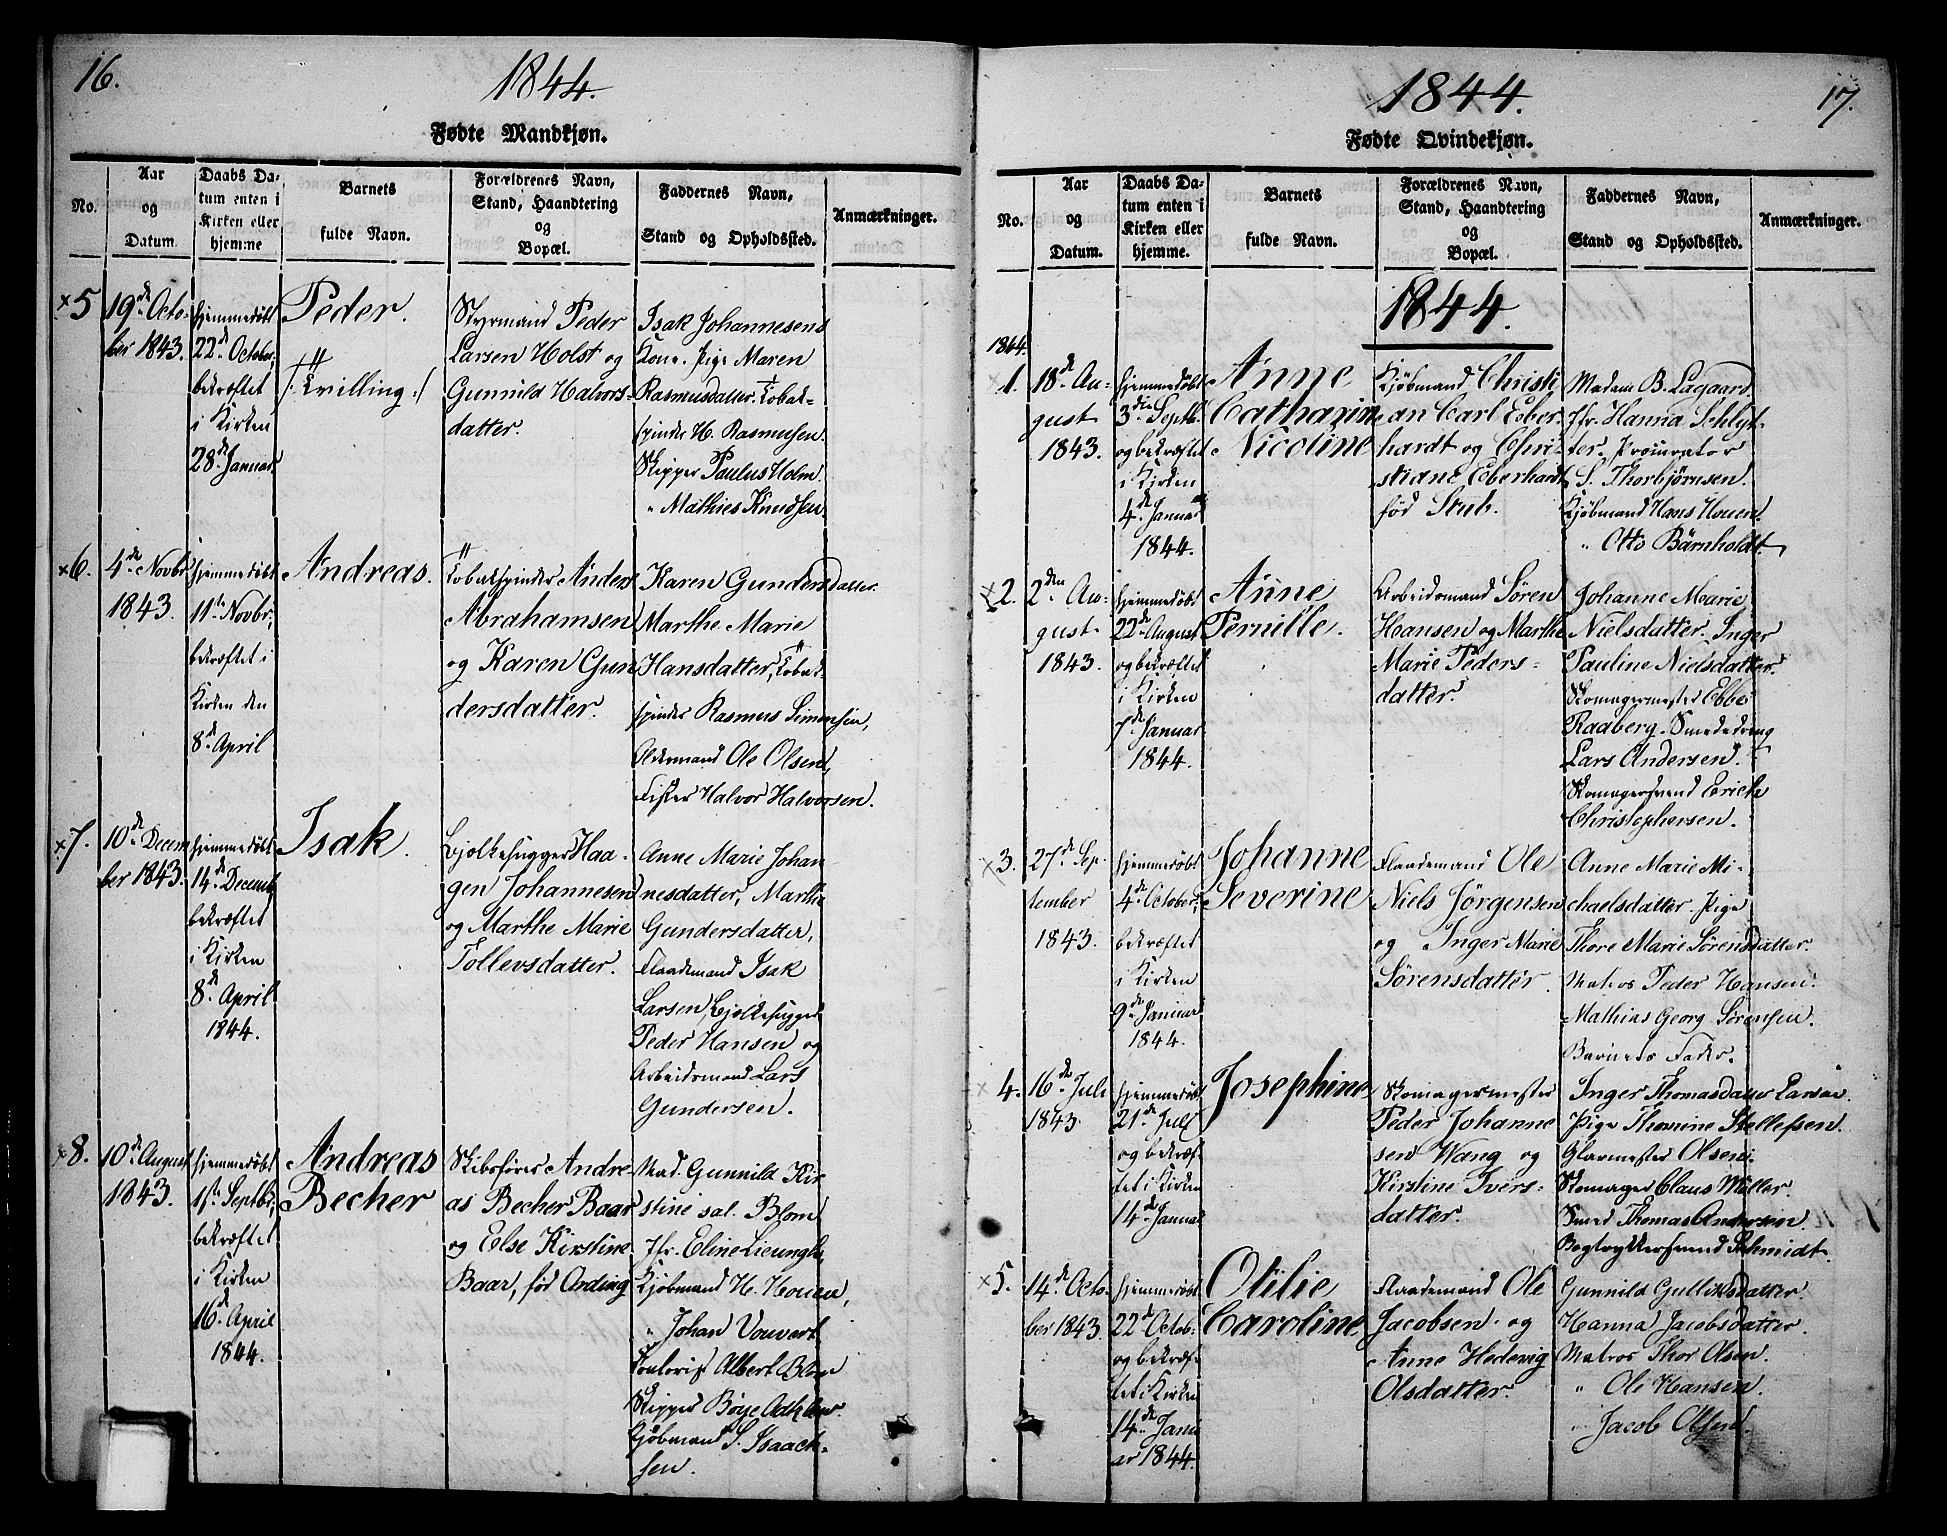 16.
1844.
Fødte Mandkjøn.
No.
Aar
og
Datum.
Daabs Da-
tum enten i
Kirken eller
hjemme
Barnets
fulde Navn.
Forældrenes Navn,
Stand, Haandtering
og
Bopæl.
Faddernes Navn,
Stand og Opholdssted.
Anmærkninger.
×5
19de Octo-
ber 1843.
hjemmedøbt
22de October,
bekræftet
i Kirken
28de Januar
Peder.
/: Tvilling :/
Styrmand Peder
Larsen Holst og
Gunnild Halvors-
datter.
Isak Johannesens
Kone. Pige Maren
Rasmusdatter. Tobak-
spinder H. Rasmusen.
Skipper Paulus Holm.
" Mathies Knudsen.
×6.
4de Novbr
1843.
hjemmedøbt
11te Novbr,
bekræftet i
Kirken den
8de April
Andreas.
Tobakspinder Anders
Abrahamsen
og Karen Gun
dersdatter.
Karen Gundersdatter.
Marthe Marie
Hansdatter, Tobak-
spinder Rasmus Simonsen,
Oldermand Ole Olsen,
Fisker Halvor Halvorsen.
×7.
10de Decem
ber 1843.
hjemmedøbt
14de Decemb,
bekræftet
i Kirken
8de April
1844.
Isak.
Bjelkehugger Haa-
gen Johannesen
og Marthe Marie
Tollevsdatter.
Anne Marie Johan
nesdatter, Marthe
Gundersdatter,
Flaademand Isak
Larsen, Bjelkehugger
Peder Hansen og
Arbeidsmand Lars
Gundersen.
×8.
10de August
1843.
hjemmedøbt
1ste Septbr,
bekræftet
i Kirken
16de April
1844.
Andreas
Becher
Skibsfører Andre-
as Becher Baar
og Else Kirstine
Baar, fød Ording
Mad. Gunnild Kir-
stine sal. Blom
Jfr. Eline
Kjøbmand H. Houen,
" Johan Vouvert
Albert Blom
Skipper Bøye
Kjøbmand S. Isaach-
sen.
17.
1844.
Fødte Qvindekjøn.
No.
Aar
og
Datum.
Daabs Da-
tum enten i
Kirken eller
hjemme.
Barnets
fulde Navn.
Forældrenes Navn,
Stand, Haandtering
og
Bopæl.
Faddernes Navn,
Stand og Opholdssted.
Anmærkninger.
1844.
1844.
×1.
18de Au-
gust
1843.
hjemmedøbt
3die Septb.
og bekræftet
i Kirken
4de Januar
1844.
Anne
Catharine
Nicoline
Kjøbmand Christi
an Carl Eber-
hardt og Chri-
stiane Eberhardt
fød Stub.
Madam B. Lagaard
Jfr. Hanna Schlyt-
ter. Procurator
S. Thorbjørnsen.
Kjøbmand Hans Houen.
" Otto Bärnholdt
×2.
2den Au-
gust
1843.
hjemmedøbt
22de August
og bekræftet
i Kirken
7de Januar
1844.
Anne
Pernille.
Arbeidsmand Søren
Hansen og Marthe
Marie Peders-
datter.
Johanne Marie
Nielsdatter. Inger
Pauline Nielsdatter.
Skomagermester Ebbe
Raaberg. Smededreng
Lars Andersen.
Skomagersvend Erich
Christophersen.
×3.
27de Sep-
tember
1843.
hjemmedøbt
4de October,
bekræftet
i Kirken
9de Januar
1844.
Johanne
Severine
Flaademand Ole
Niels Jørgensen
og Inger Marie
Sørensdatter.
Anne Marie Mi-
chaelsdatter. Pige
Thore Marie Sørensdatter.
Matros Peder Hansen.
Mathias Georg Sørensen.
Barnets Fader.
×4.
16de Juli
1843.
hjemmedøbt
21de Juli
og bekræf-
tet i Kirken
14de Januar
Josephine
Skomagermester
Peder Johanne
sen Wang og
Kirstine Ivers-
datter.
Inger Thomasdatter
Pige Thomine Stellefsen.
Glarmester Olsen.
Skomager Claus Møller.
Smed Thomas Andersen.
Bogtrykkersvend Schmidt.
×5.
14de Octo-
ber 1843.
hjemmedøbt
22de Octob.
og bekræf-
tet i Kirken
14de Janu
ar 1844.
Otilie
Caroline
Flaademand Ole
Jacobsen og
Anne Hedevig
Olsdatter.
Gunnild Gulliksdatter
Hanna Jacobsdatter.
Matros Thor Olsen.
" Ole Hansen.
" Jacob Olsen.